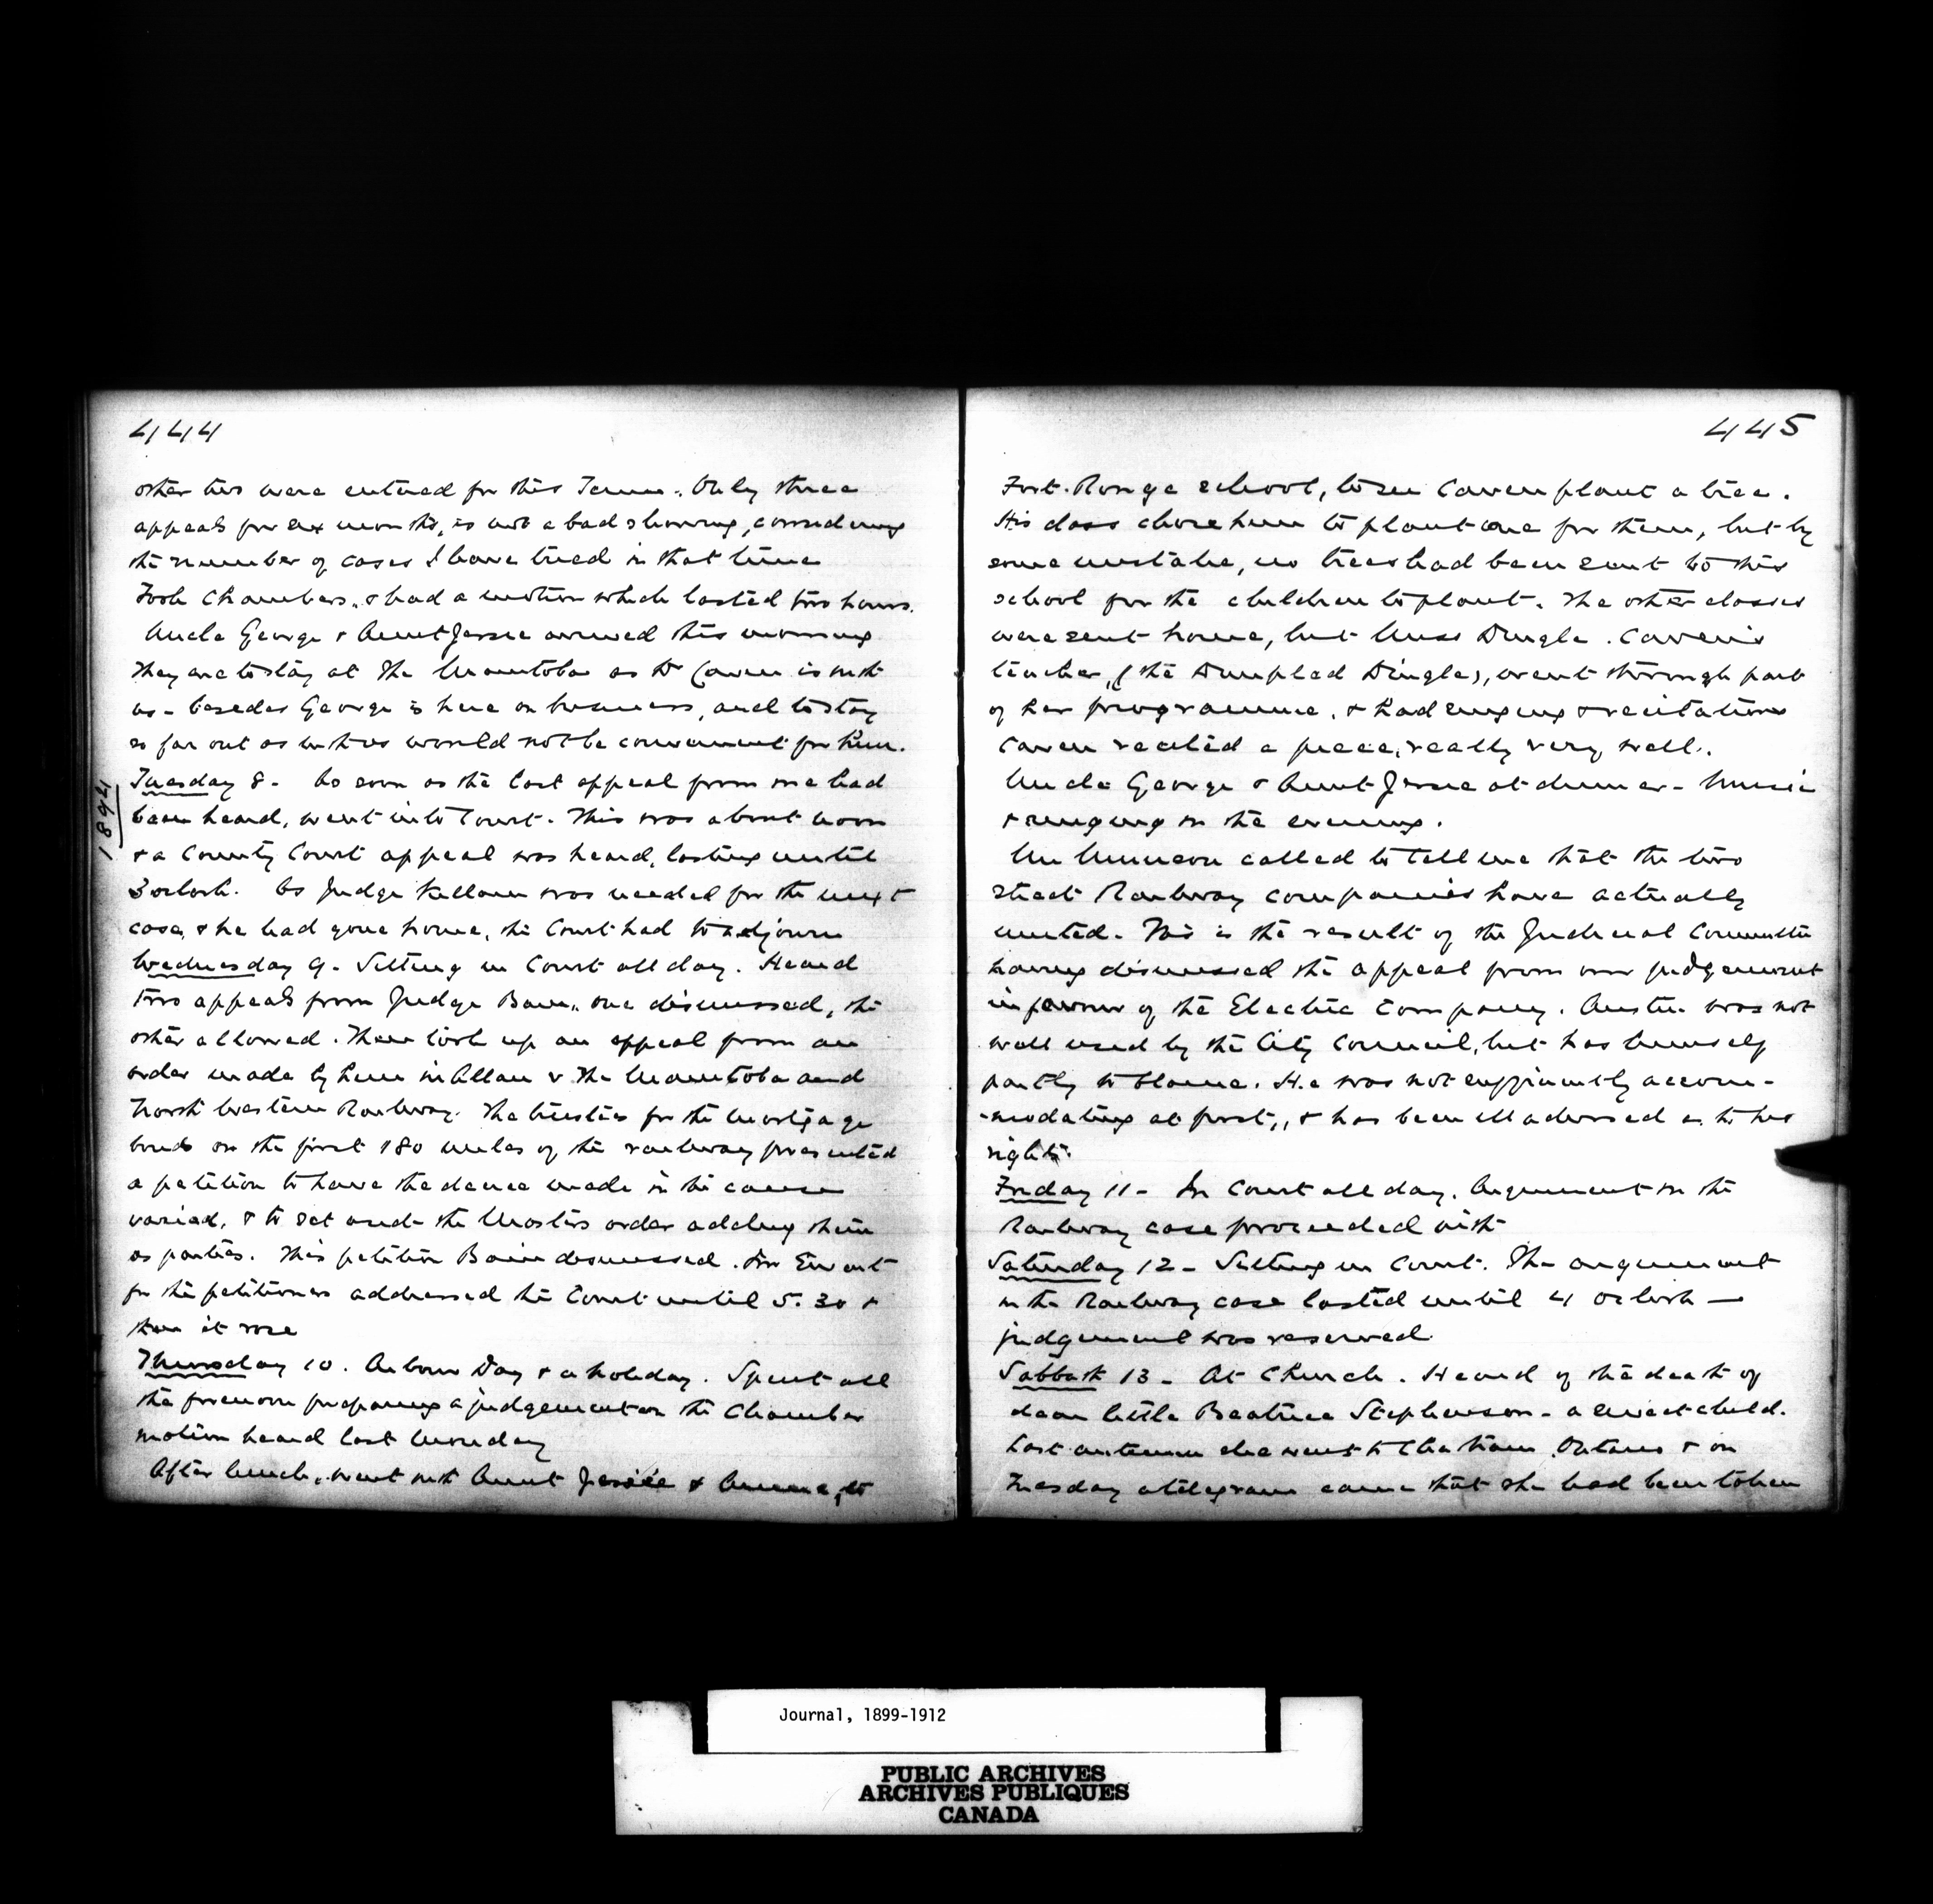 444
other two were entered for this Term. Only three
appeals for six months, is not a bad showing, considering
the number of cases I have tried in that time
Took Chambers, & had a motion which lasted two hours.
Uncle George & Aunt Jessie arrived this morning
They are to stay at The Manitoba as Dr Caven is with
us - besides George is here on business, and to stay
so far out as with us would not be convenient for him.
1894
Tuesday 8 - As soon as the last appeal from me had
been heard, went into Court. This was about noon
& a County Court appeal was heard, lasting until
3 oclock. As Judge Killam was needed for the next
case, & he had gone home, the Court had to adjourn
Wednesday 9 - Sitting in Court all day. Heard
two appeals from Judge Bain, one dismissed, the
other allowed. Then took up an appeal from an
order made by him in Allan v The Manitoba and
North Western Railway. The trustees for the mortgage
bonds on the first 180 miles of the railway presented
a petition to have the decree made in the cause
varied, & to set aside the Masters order adding them
as parties. This petition Bain dismissed. Ewart
for the petitioners addressed the Court until 5.30 &
then it rose
Thursday 10. Arbour Day & a holiday. Spent all
the forenoon preparing a judgement on the Chamber
motion heard last Monday
After lunch, went with Aunt Jessie & Annie, to
445
Fort Rouge school, to see Caven plant a tree.
His class chose him to plant one for them, but by
some mistake, no trees had been sent to this
school for the children to plant. The other classes
were sent home, but Miss Dingle. Caven's
teacher, (the Dimpled Dingle), went through part
of her programme, & had singing & recitations
Caven recited a piece, really very well.
Uncle George & Aunt Jessie at dinner - Music
& singing in the evening.
Mr Munson called to tell me that the two
street Railway companies have actually
united. This is the result of the Judicial Committee
having dismissed the appeal from our judgement
in favour of the Electric Company. Austin was not
well used by the City Council, but has himself
partly to blame. He was not sufficiently accom-
-modating at first, & has been ill advised as to his
rights.
Friday 11 - In Court all day. Argument in the
Railway case proceeded with
Saturday 12 - Sitting in Court. The argument
in the Railway case lasted until 4 oclock —
judgement was reserved
Sabbath 13 - At Church. Heard of the death of
dear little Beatrice Stephenson - a sweet child.
Last autumn she went to Chatham Ontario & on
Tuesday a telegram came that she had been taken
Journal, 1899-1912
PUBLIC ARCHIVES
ARCHIVES PUBLIQUES
CANADA